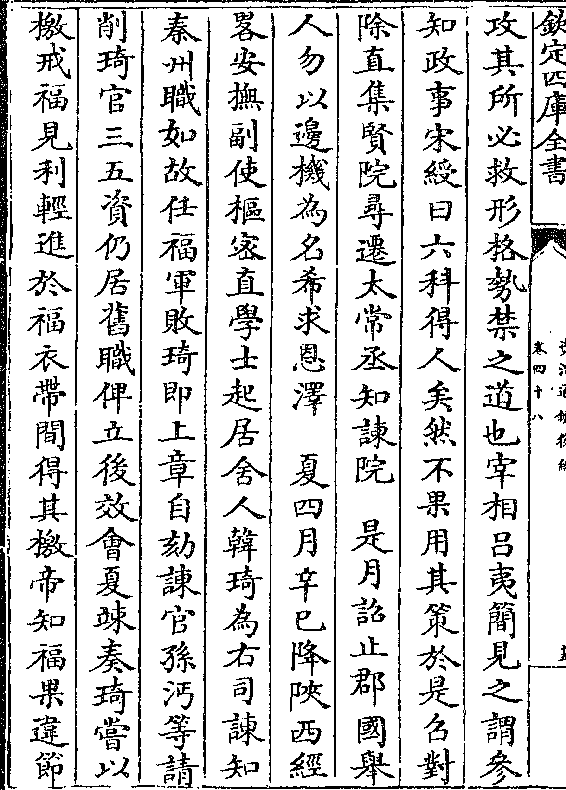 欽定四庫全書
卷四十八
攻其所必救形格勢禁之道也宰相吕夷簡見之謂參
知政事宋綬曰六科得人矣然不果用其策於是召對
除直集賢院尋遷太常丞知諫院 是月詔止郡國舉
人勿以邊機為名希求恩澤 夏四月辛巳降陜西經
畧安撫副使樞密直學士起居舍人韓琦為右司諫知
秦州職如故任福軍敗琦即上章自劾諫官孫沔等請
削琦官三五資仍居舊職俾立後效會夏竦奏琦嘗以
檄戒福見利輕進於福衣帶間得其檄帝知福果違節